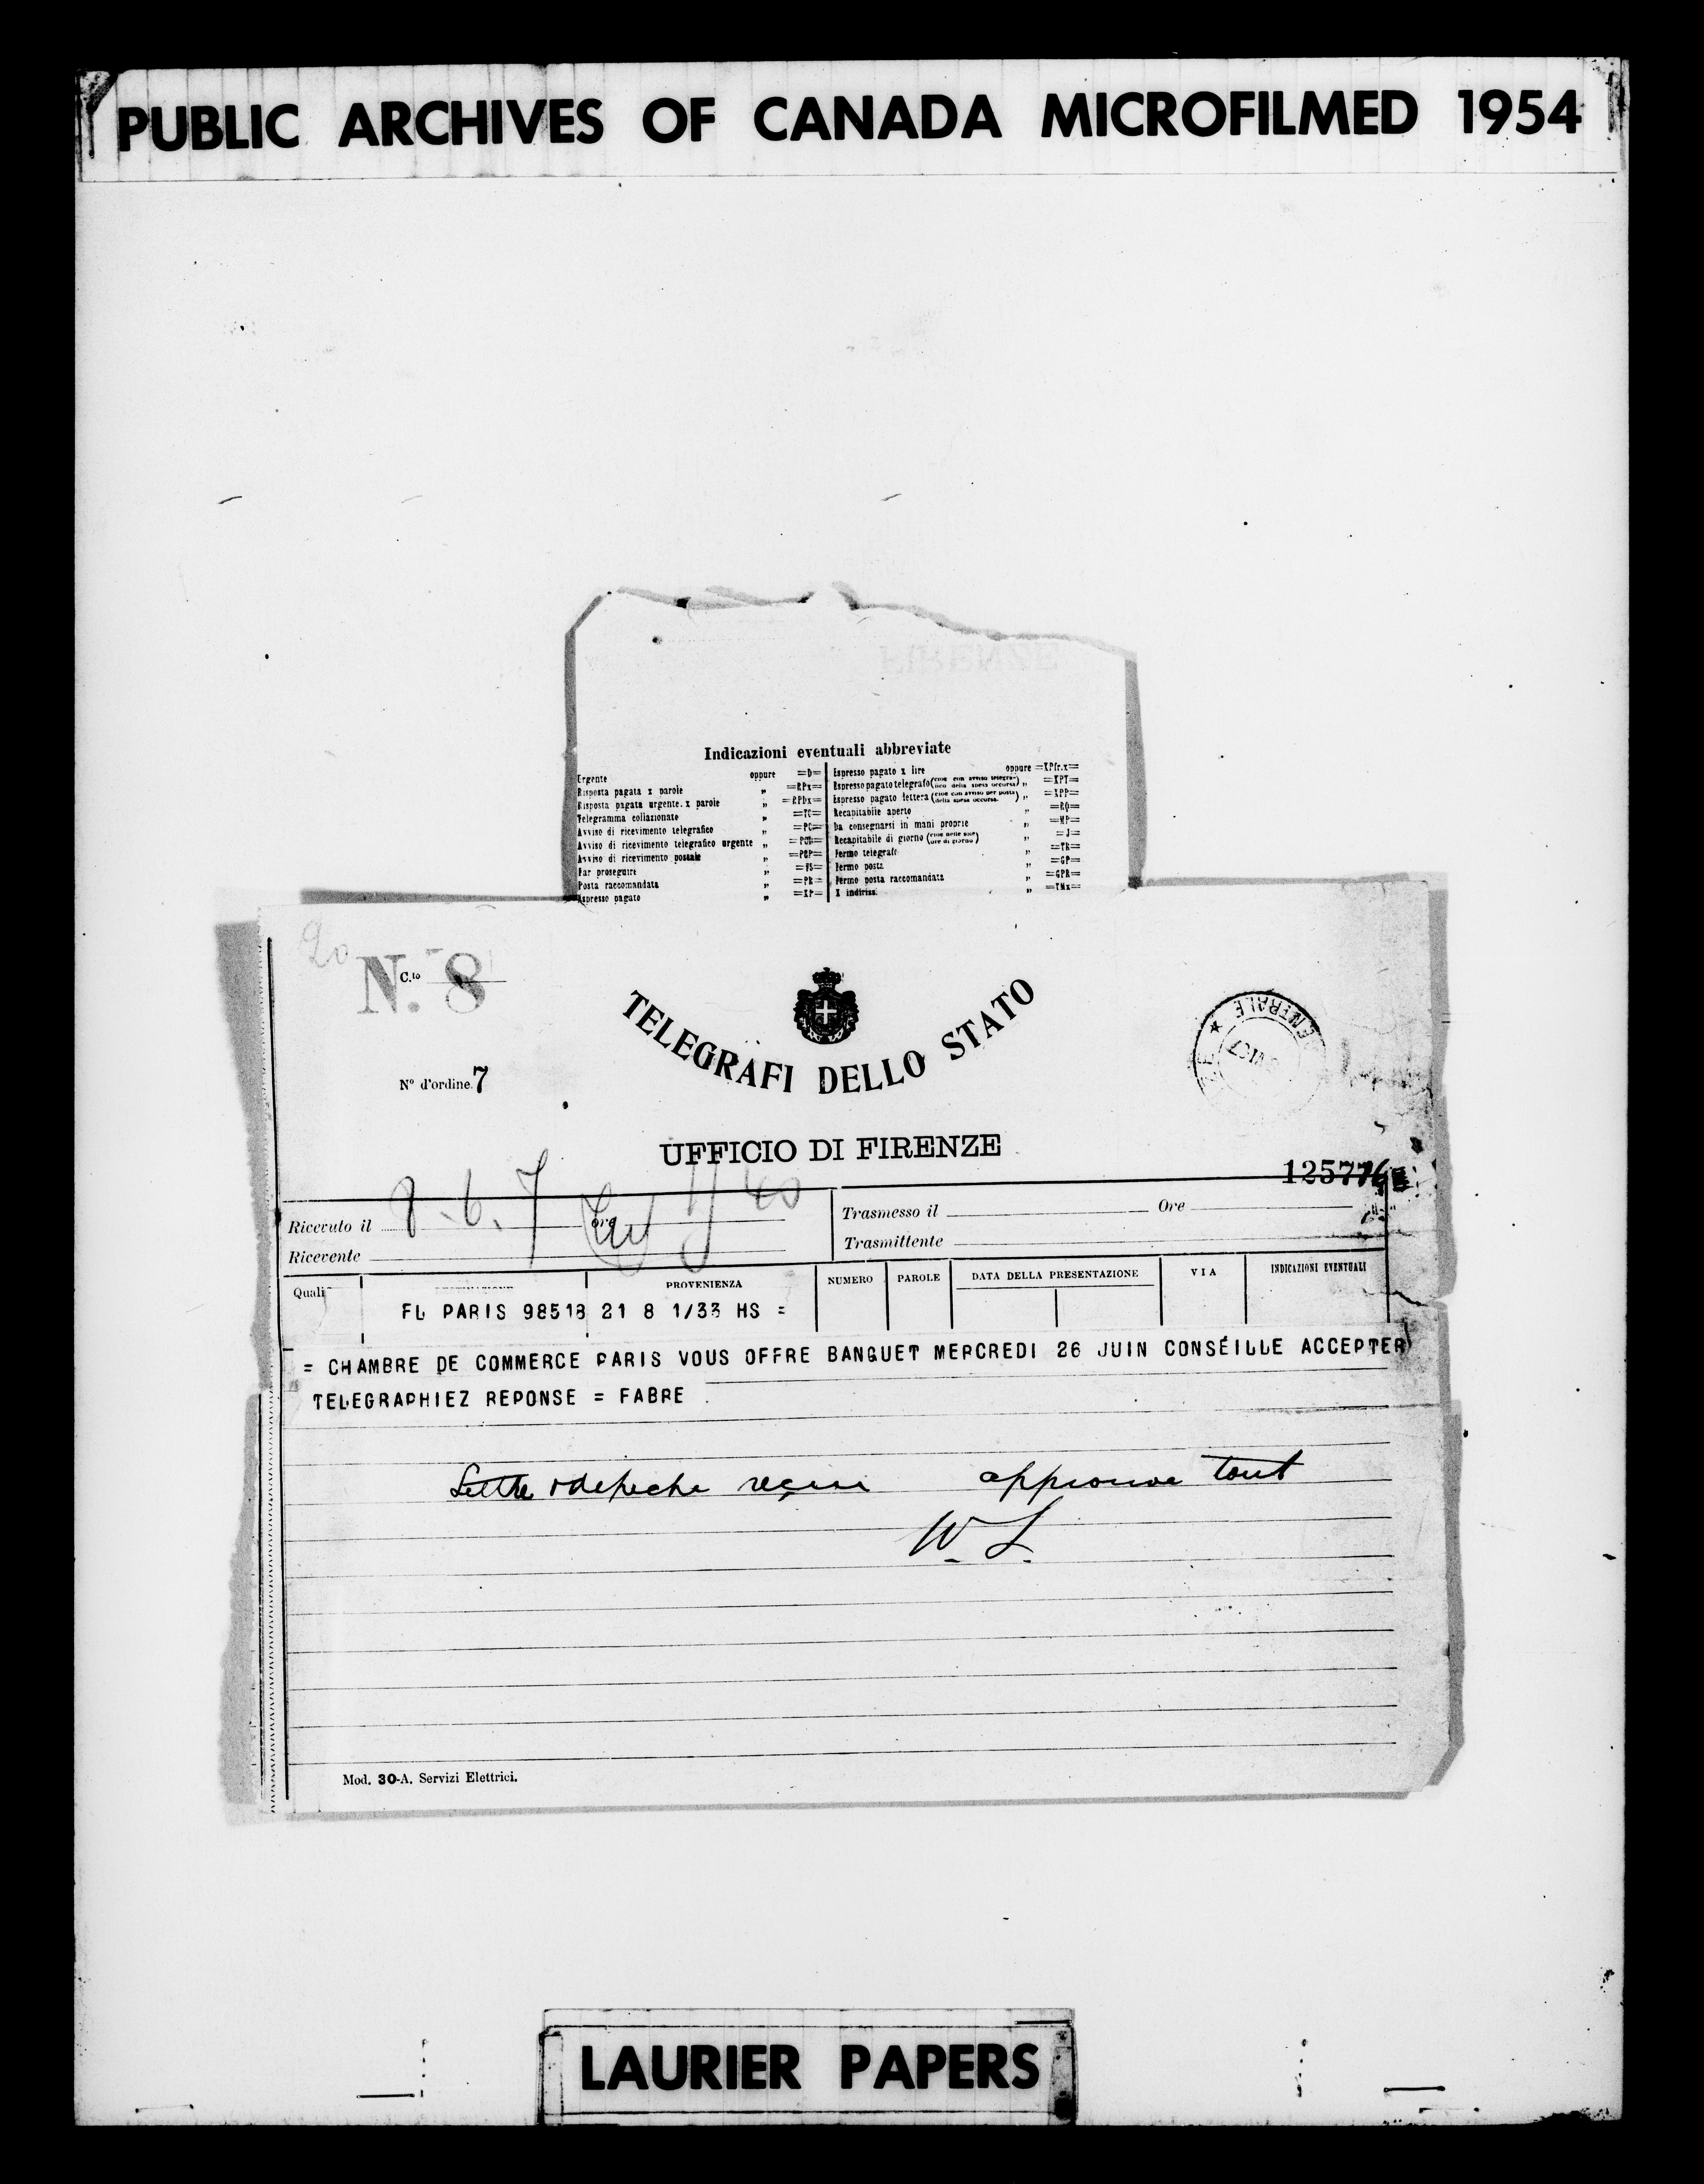 PUBLIC ARCHIVES OF CANADA MICROFILMED 1954
FIRENZE
Indicazioni eventuali abbreviate
Urgente oppure =D=
Risposta pagata x parole „ =RPx=
Risposta pagata urgente. x parole „ =RPDx=
Telegramma collazionato „ =TC=
Avviso di ricevimento telegrafico „ =PC=
Avviso di ricevimento telegrafico urgente „ =PCD=
Avviso di ricevimento postale „ =PCP=
Far proseguire „ =FS=
Posta raccomandata „ =PR=
Espresso pagato „ =XP=
Espresso pagato x lire oppure =XPfr.x=
Espresso pagato telegrafo „ =XPT=
Espresso pagato lettera „ =XPP=
Recapitabile aperto „ =RO=
Da consegnarsi in mani proprie „ =MP=
Recapitabile di giorno „ =J=
Fermo telegrafo „ =TR=
Fermo posta „ =GP=
Fermo posta raccomandata „ =GPR=
X indirizzi „ =TMx=
20
N. C.to 8
TELEGRAFI DELLO STATO
N° d'ordine. 7
UFFICIO DI FIRENZE
125776
Ricevuto il 8.6.7 ore 11 40
Trasmesso il Ore
Ricevente
Trasmittente
Qualif PROVENIENZA NUMERO PAROLE DATA DELLA PRESENTAZIONE VIA INDICAZIONI EVENTUALI
FL PARIS 98518 21 8 1/33 HS =
= CHAMBRE DE COMMERCE PARIS VOUS OFFRE BANQUET MERCREDI 26 JUIN CONSEILLE ACCEPTER
TELEGRAPHIEZ REPONSE = FABRE
Lettre & depeche reçue approuve tout
W. L.
Mod. 30-A. Servizi Elettrici.
LAURIER PAPERS